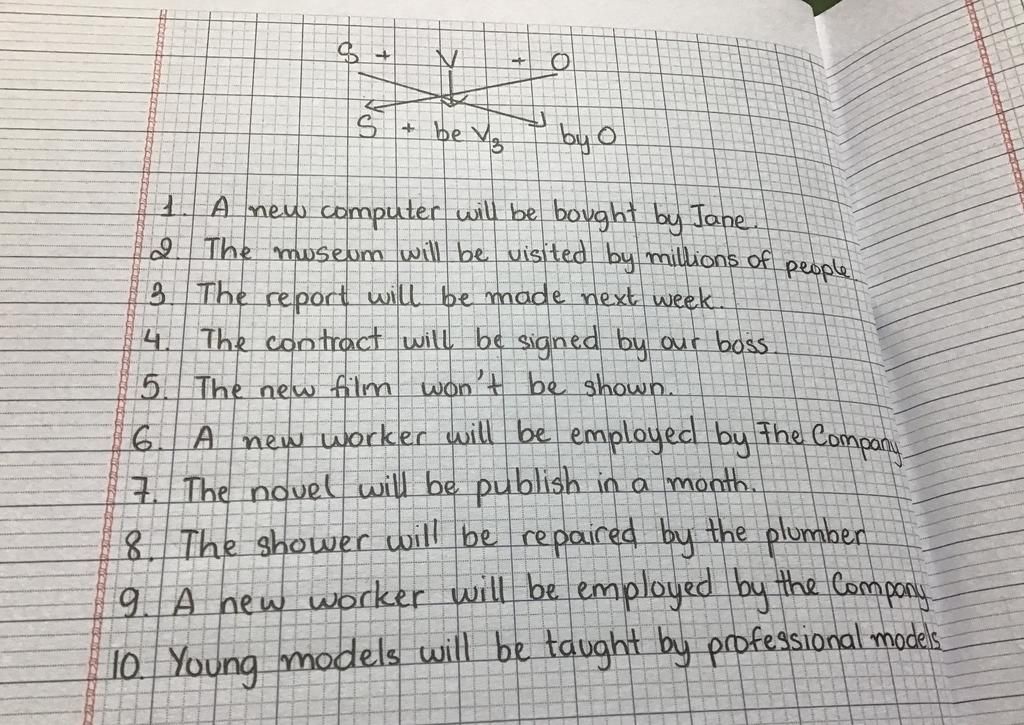 S + V + O
S + be V3 by O
1. A new computer will be bought by Jane.
2. The museum will be visited by millions of people
3. The report will be made next week.
4. The contract will be signed by our boss.
5. The new film won't be shown.
6. A new worker will be employed by The Company
7. The novel will be publish in a month.
8. The shower will be repaired by the plumber
9. A new worker will be employed by the Company
10. Young models will be taught by professional models